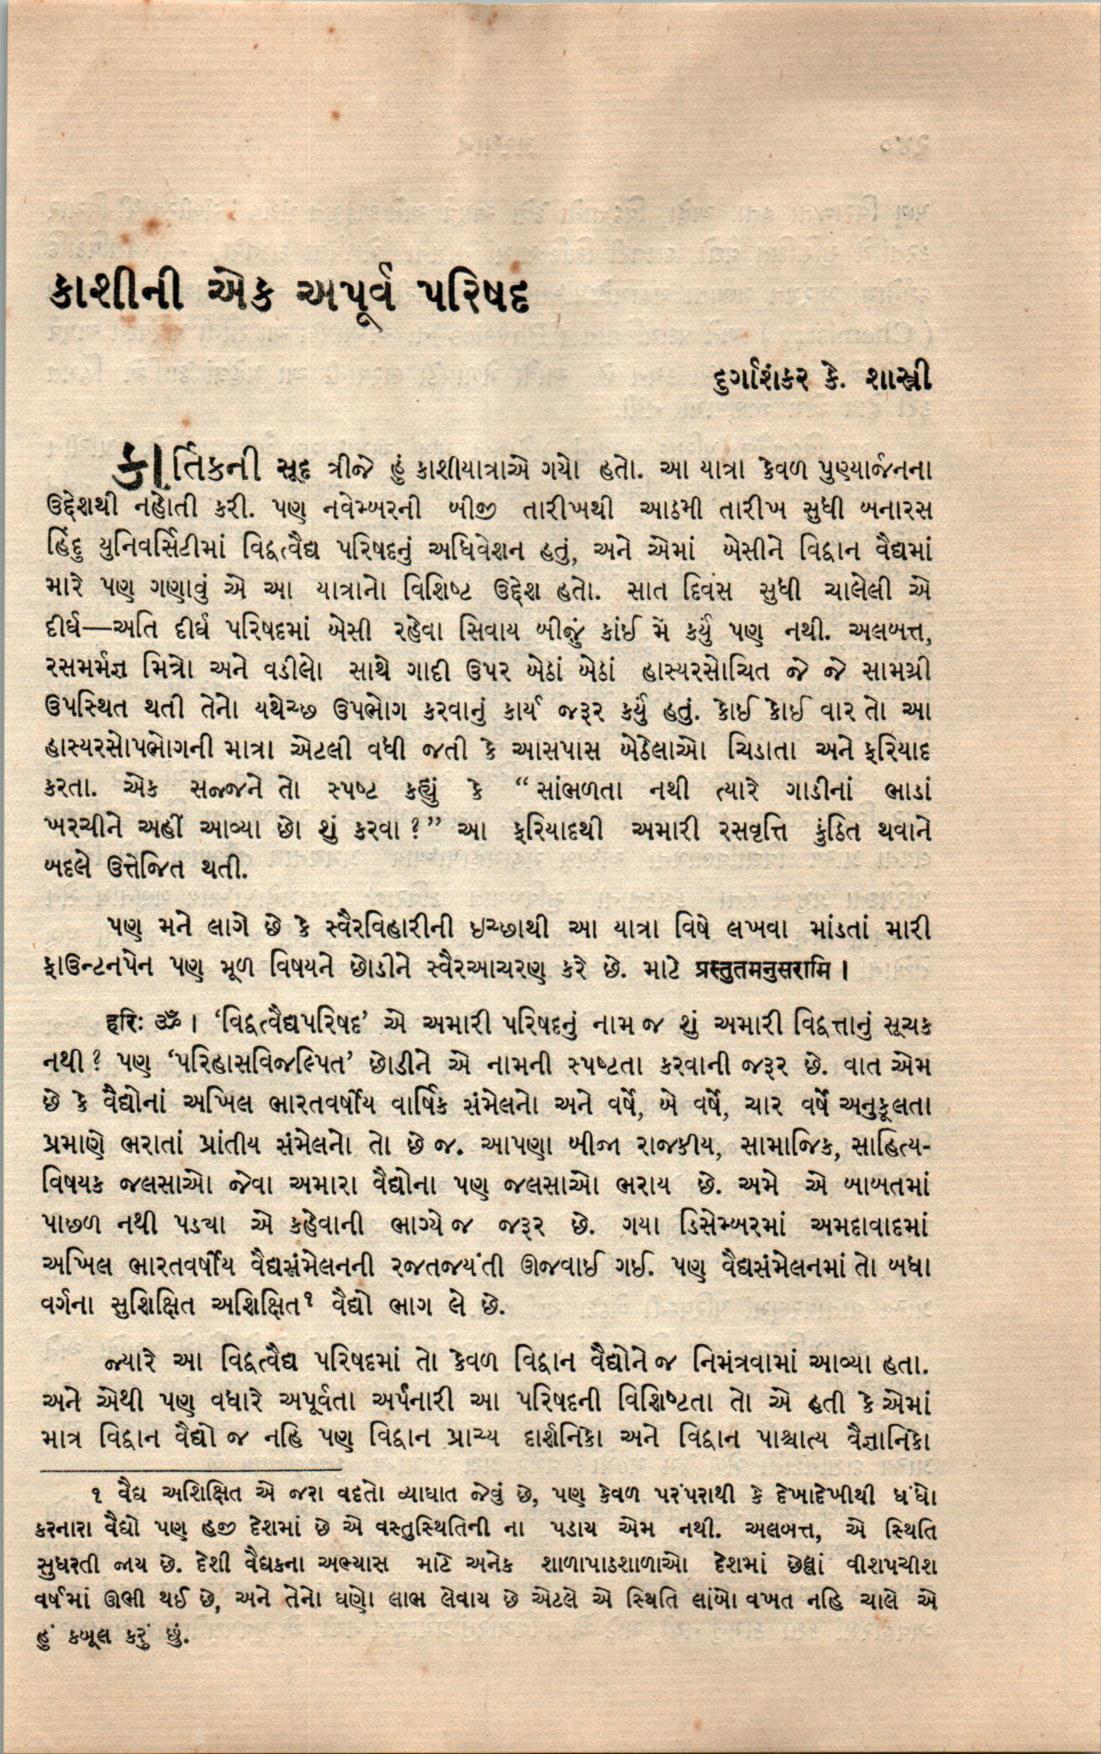 કાશીની એક અપૂર્વ પરિષદ
દુર્ગાશંકર કે. શાસ્ત્રી
કાર્તિકની સૂદ ત્રીજે હું કાશીયાત્રાએ ગયો હતો. આ યાત્રા કેવળ પુણ્યાર્જનના
ઉદ્દેશથી નહોતી કરી. પણ નવેમ્બરની બીજી તારીખથી આઠમી તારીખ સુધી બનારસ
હિંદુ યુનિવર્સિટીમાં વિદ્વત્વૈદ્ય પરિષદનું અધિવેશન હતું, અને એમાં બેસીને વિદ્વાન વૈદ્યમાં
મારે પણ ગણાવું એ આ યાત્રાનો વિશિષ્ટ ઉદ્દેશ હતો. સાત દિવસ સુધી ચાલેલી એ
દીર્ઘ—અતિ દીર્ઘ પરિષદમાં બેસી રહેવા સિવાય બીજું કાંઈ મેં કર્યું પણ નથી. અલબત્ત,
રસમર્મજ્ઞ મિત્રો અને વડીલો સાથે ગાદી ઉપર બેઠાં બેઠાં હાસ્યરસોચિત જે જે સામગ્રી
ઉપસ્થિત થતી તેનો યથેચ્છ ઉપભોગ કરવાનું કાર્ય જરૂર કર્યું હતું. કોઈ કોઈ વાર તો આ
હાસ્યરસોપભોગની માત્રા એટલી વધી જતી કે આસપાસ બેઠેલાઓ ચિડાતા અને ફરિયાદ
કરતા. એક સજ્જને તો સ્પષ્ટ કહ્યું કે “સાંભળતા નથી ત્યારે ગાડીનાં ભાડાં
ખરચીને અહીં આવ્યા છો શું કરવા ?” આ ફરિયાદથી અમારી રસવૃત્તિ કુંઠિત થવાને
બદલે ઉત્તેજિત થતી.
પણ મને લાગે છે કે સ્વૈરવિહારીની ઇચ્છાથી આ યાત્રા વિષે લખવા માંડતાં મારી
ફાઉન્ટનપેન પણ મૂળ વિષયને છોડીને સ્વૈરઆચરણ કરે છે. માટે प्रस्तुतमनुसरामि ।
हरिः ॐ । ‘વિદ્વત્વૈદ્યપરિષદ’ એ અમારી પરિષદનું નામ જ શું અમારી વિદ્વત્તાનું સૂચક
નથી ? પણ ‘પરિહાસવિજલ્પિત’ છોડીને એ નામની સ્પષ્ટતા કરવાની જરૂર છે. વાત એમ
છે કે વૈદ્યોનાં અખિલ ભારતવર્ષીય વાર્ષિક સંમેલનો અને વર્ષે, બે વર્ષે, ચાર વર્ષે અનુકૂલતા
પ્રમાણે ભરાતાં પ્રાંતીય સંમેલનો તો છે જ. આપણા બીજા રાજકીય, સામાજિક, સાહિત્ય-
વિષયક જલસાઓ જેવા અમારા વૈદ્યોના પણ જલસાઓ ભરાય છે. અમે એ બાબતમાં
પાછળ નથી પડ્યા એ કહેવાની ભાગ્યે જ જરૂર છે. ગયા ડિસેમ્બરમાં અમદાવાદમાં
અખિલ ભારતવર્ષીય વૈદ્યસંમેલનની રજતજયંતી ઊજવાઈ ગઈ. પણ વૈદ્યસંમેલનમાં તો બધા
વર્ગના સુશિક્ષિત અશિક્ષિત૧ વૈદ્યો ભાગ લે છે.
જ્યારે આ વિદ્વત્વૈદ્ય પરિષદમાં તો કેવળ વિદ્વાન વૈદ્યોને જ નિમંત્રવામાં આવ્યા હતા.
અને એથી પણ વધારે અપૂર્વતા અર્પનારી આ પરિષદની વિશિષ્ટતા તો એ હતી કે એમાં
માત્ર વિદ્વાન વૈદ્યો જ નહિ પણ વિદ્વાન પ્રાચ્ય દાર્શનિકો અને વિદ્વાન પાશ્ચાત્ય વૈજ્ઞાનિકો
૧ વૈદ્ય અશિક્ષિત એ જરા વદતો વ્યાઘાત જેવું છે, પણ કેવળ પરંપરાથી કે દેખાદેખીથી ધંધો
કરનારા વૈદ્યો પણ હજી દેશમાં છે એ વસ્તુસ્થિતિની ના પડાય એમ નથી. અલબત્ત, એ સ્થિતિ
સુધરતી જાય છે. દેશી વૈદ્યકના અભ્યાસ માટે અનેક શાળાપાઠશાળાઓ દેશમાં છેલ્લાં વીશપચીશ
વર્ષમાં ઊભી થઈ છે, અને તેનો ઘણો લાભ લેવાય છે એટલે એ સ્થિતિ લાંબો વખત નહિ ચાલે એ
હું કબૂલ કરું છું.